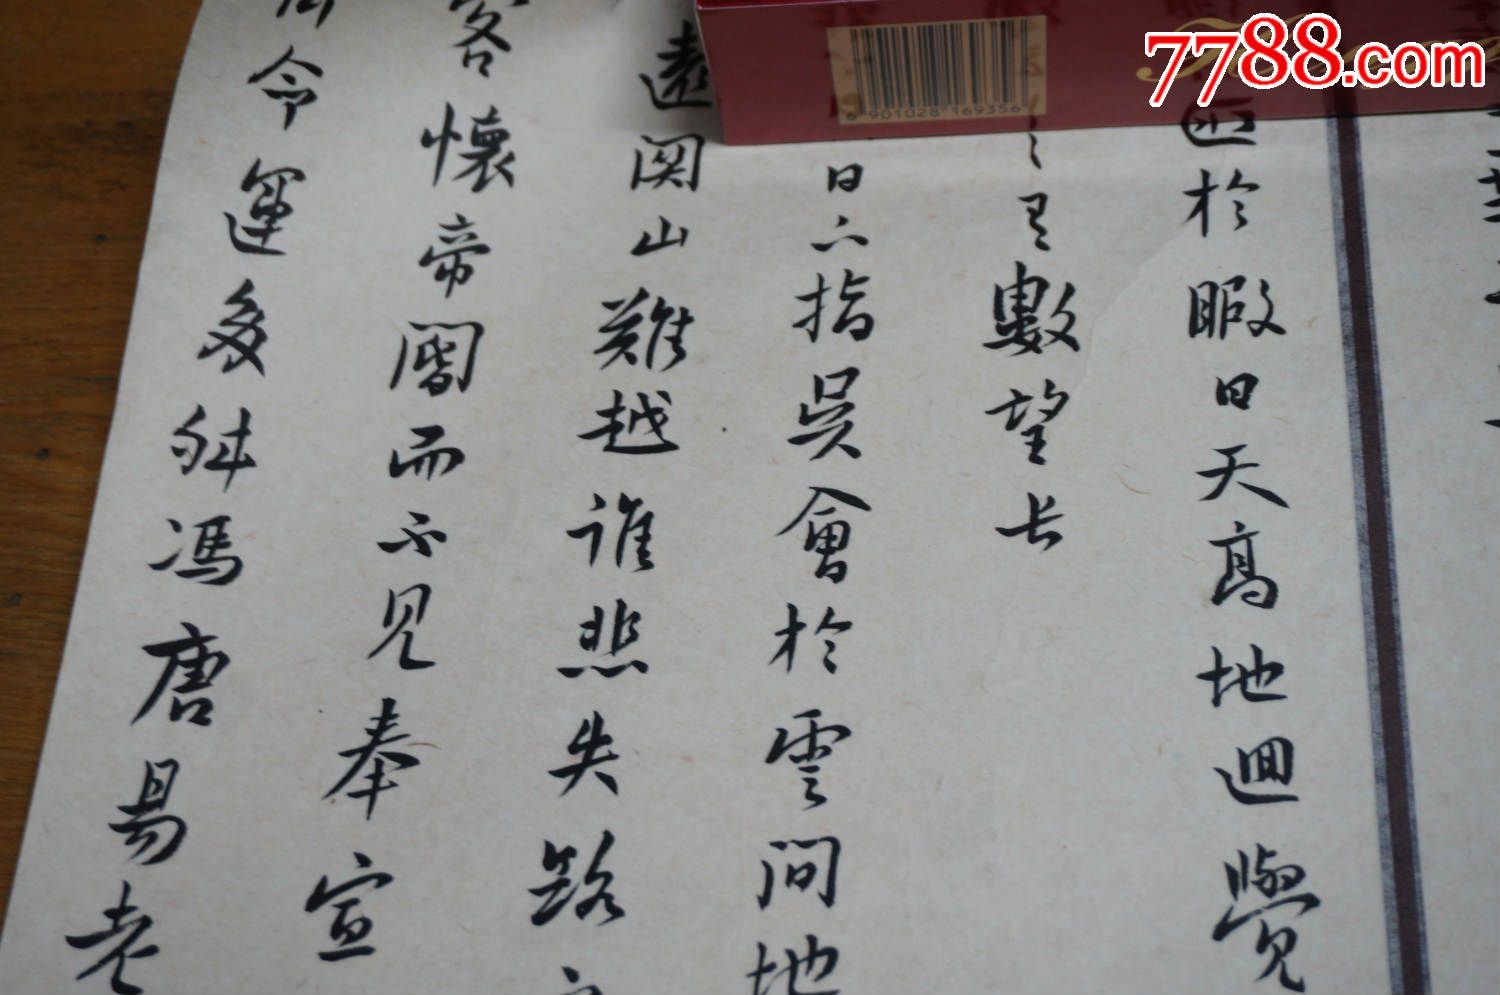 7788.com
6 901028 169356
於暇日天高地迴覺
有數望长
日下指吳會於雲間地
遠関山難越誰悲失路
客懷帝閽而不見奉宣
命運多舛馮唐易老